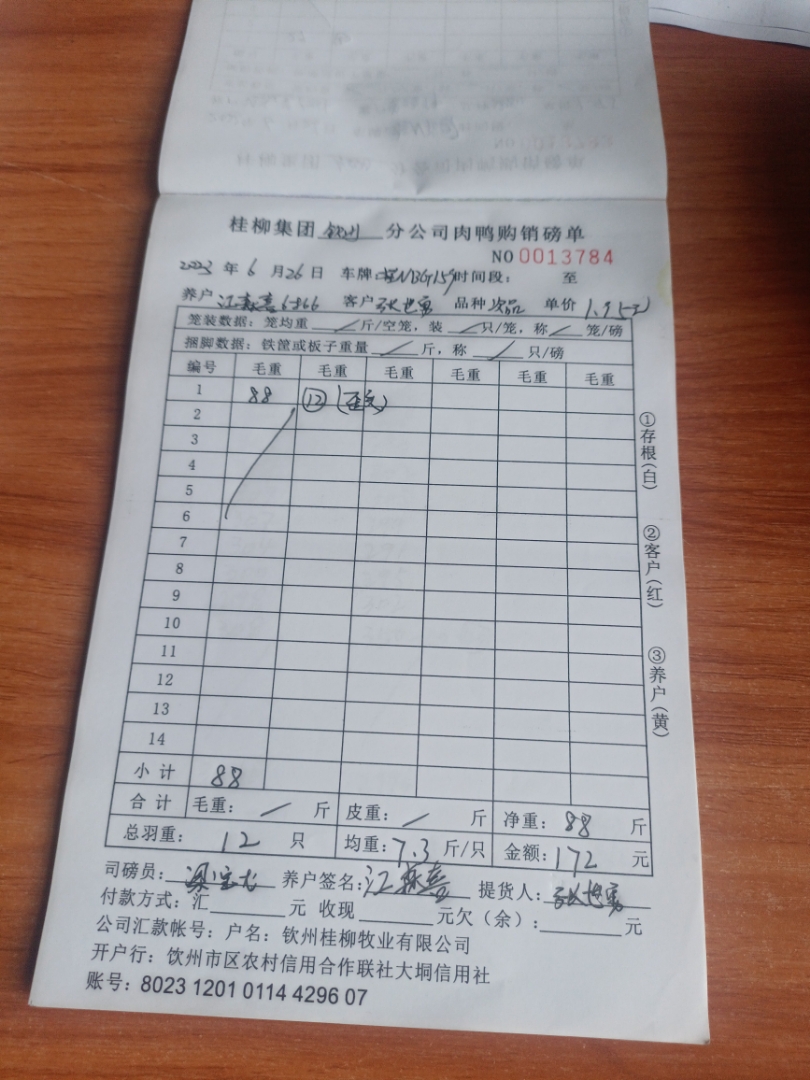 桂柳集团 钦州 分公司肉鸭购销磅单
NO 0013784
2023 年 6 月 26 日 车牌 时间段： 至
养户 江 6366 客户 张 品种 次品 单价 1.95元
笼装数据：笼均重 / 斤/空笼，装 / 只/笼，称 / 笼/磅
捆脚数据：铁筐或板子重量 / 斤，称 / 只/磅
编号 毛重 毛重 毛重 毛重 毛重 毛重
1 88 ⑫
2
3
4
5
6
7
8
9
10
11
12
13
14
小计 88
合计 毛重： / 斤 皮重： / 斤 净重：88 斤
总羽重： 12 只 均重：7.3 斤/只 金额：172 元
司磅员： 养户签名：江 提货人：张
付款方式：汇 元 收现 元欠（余）： 元
公司汇款帐号：户名：钦州桂柳牧业有限公司
开户行：钦州市区农村信用合作联社大垌信用社
账号：8023 1201 0114 4296 07
①存根（白）
②客户（红）
③养户（黄）